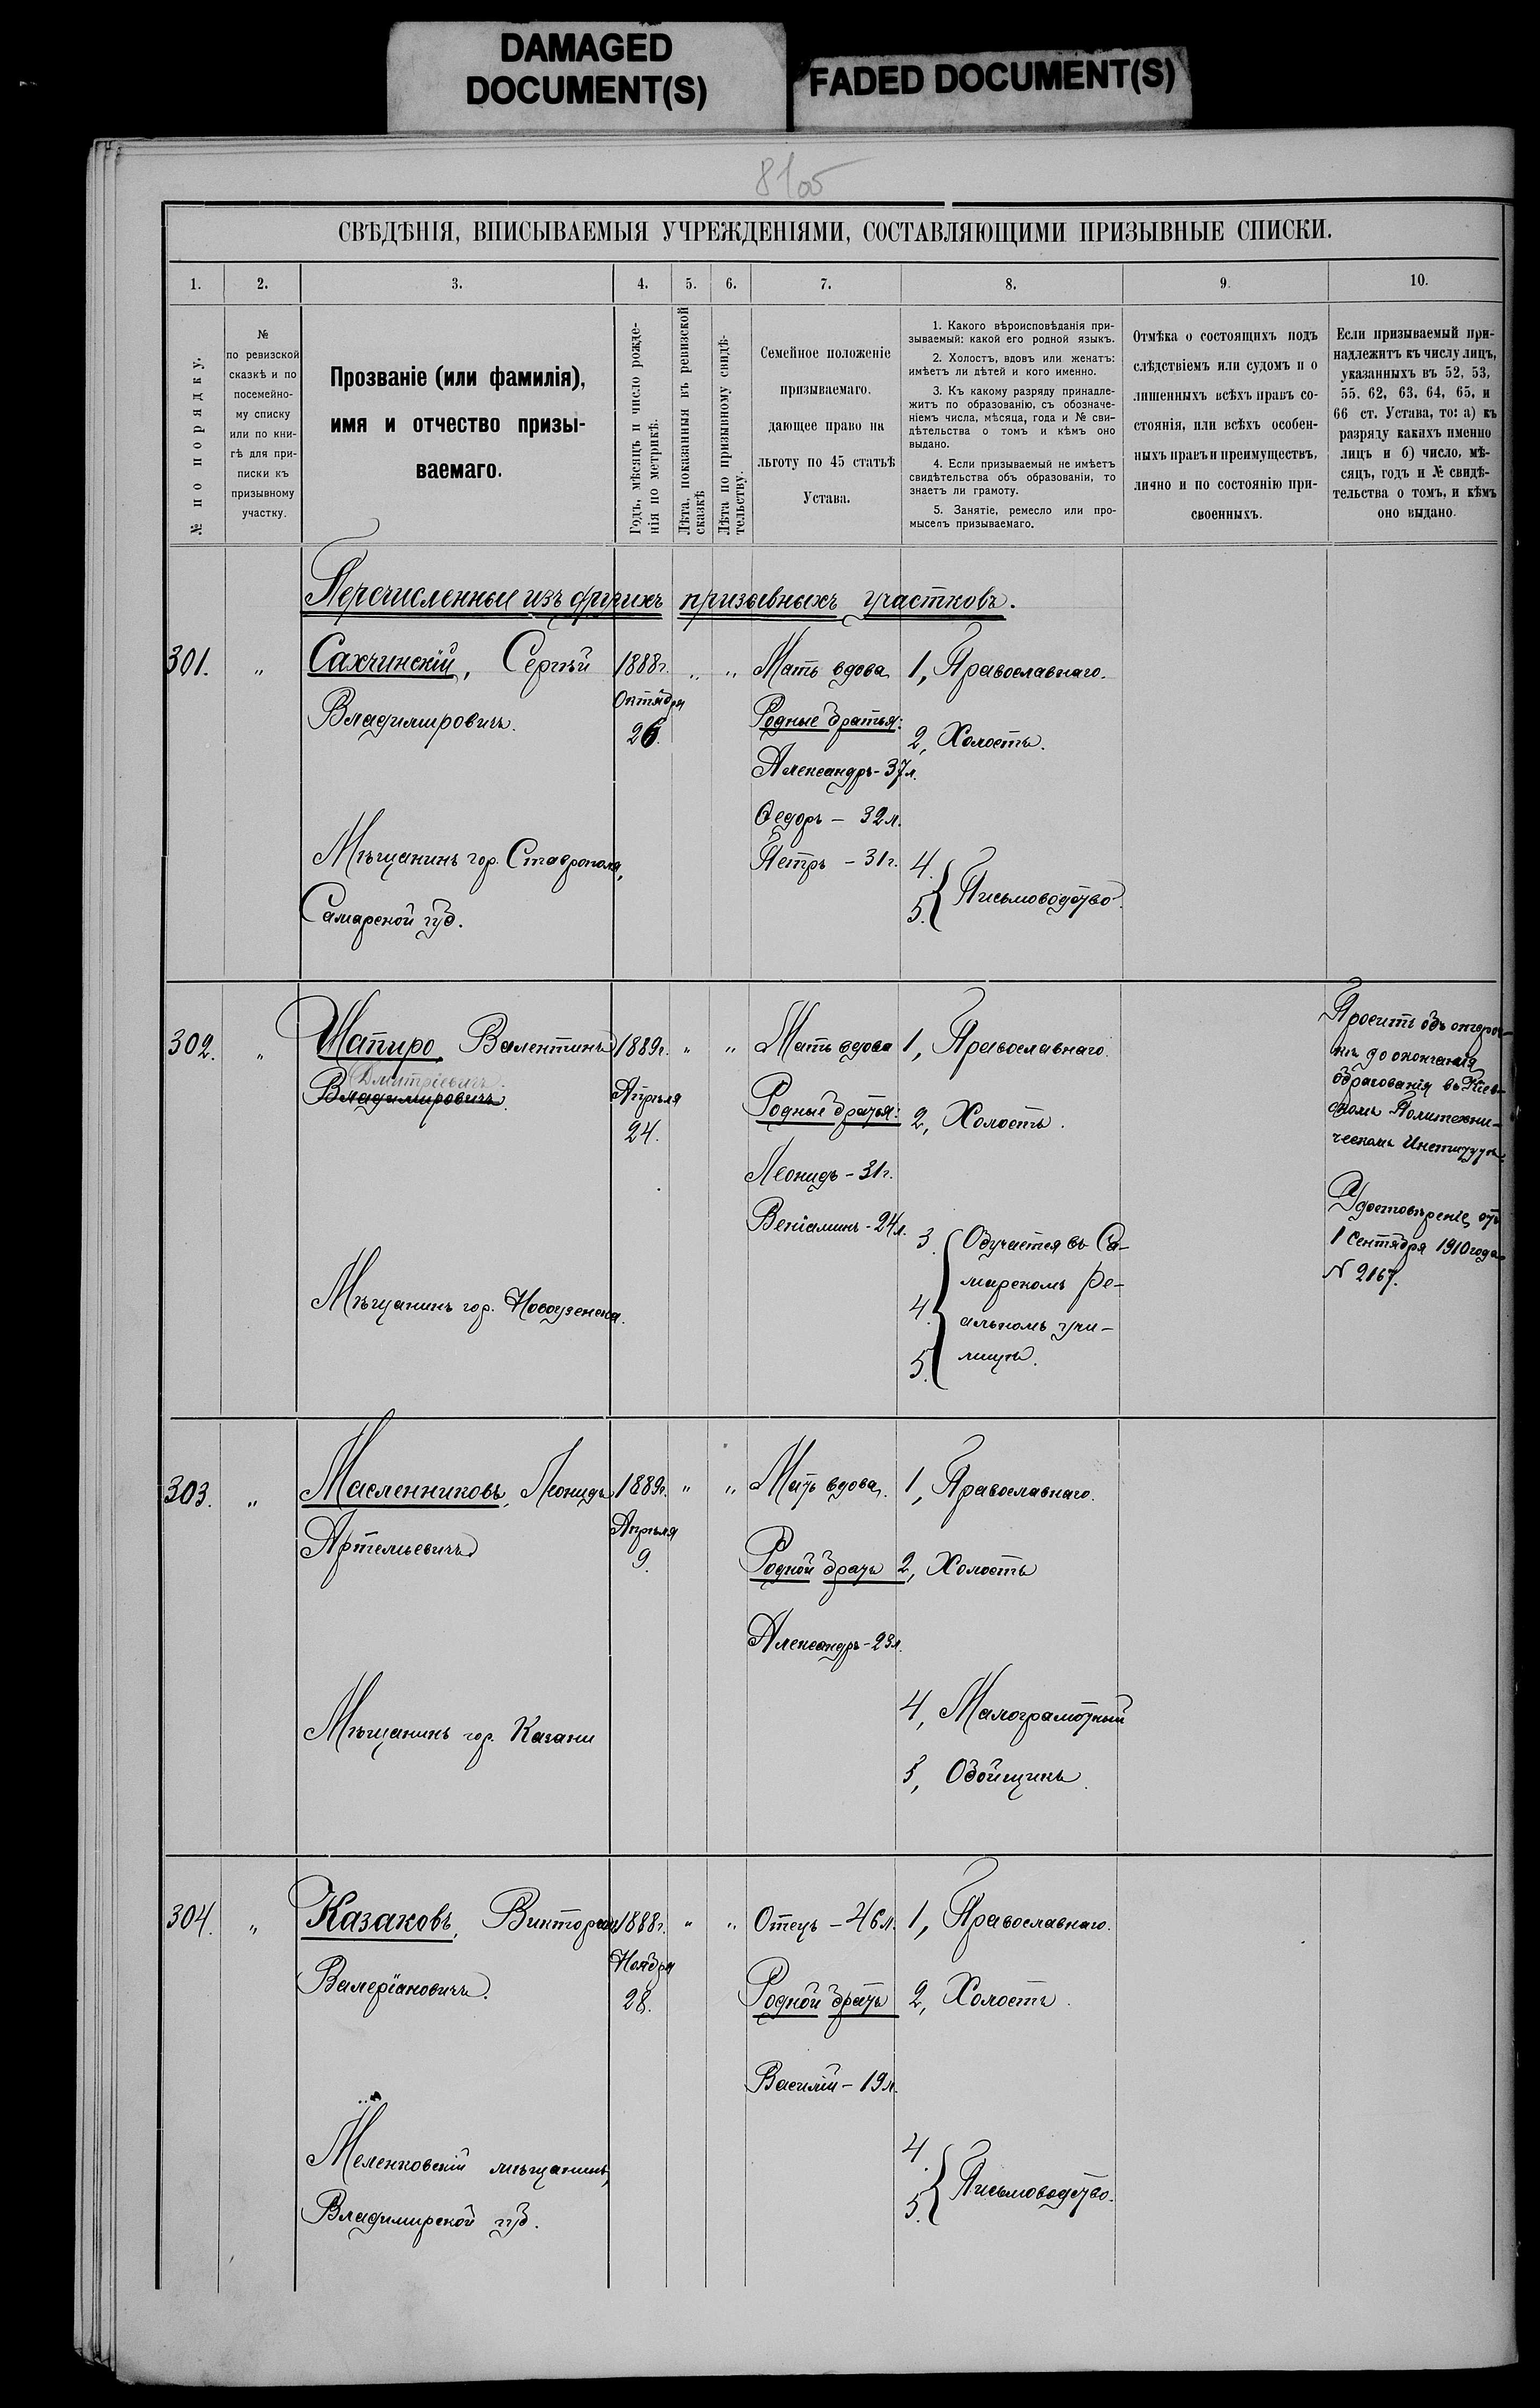 DAMAGED
DOCUMENT(S)
FADED DOCUMENT(S)
СВѢДѢНІЯ, ВПИСЫВАЕМЫЯ УЧРЕЖДЕНІЯМИ, СОСТАВЛЯЮЩИМИ ПРИЗЫВНЫЕ СПИСКИ.
1. 2. 3. 4. 5. 6. 7. 8. 9. 10.
№ по порядку.
№
по ревизской
сказкѣ и по
посемейно-
му списку
или по кни-
гѣ для при-
писки къ
призывному
участку.
Прозваніе (или фамилія),
имя и отчество призы-
ваемаго.
Годъ, мѣсяцъ и число рожде-
нія по метрикѣ.
Лѣта, показанныя въ ревизской
сказкѣ
Лѣта по призывному свидѣ-
тельству.
Семейное положеніе
призываемаго.
дающее право на
льготу по 45 статьѣ
Устава.
1. Какого вѣроисповѣданія при-
зываемый: какой его родной языкъ.
2. Холостъ, вдовъ или женатъ:
имѣетъ ли дѣтей и кого именно.
3. Къ какому разряду принадле-
житъ по образованію, съ обозначе-
ніемъ числа, мѣсяца, года и № сви-
дѣтельства о томъ и кѣмъ оно
выдано.
4. Если призываемый не имѣетъ
свидѣтельства объ образованіи, то
знаетъ ли грамоту.
5. Занятіе, ремесло или про-
мыселъ призываемаго.
Отмѣка о состоящихъ подъ
слѣдствіемъ или судомъ и о
лишенныхъ всѣхъ правъ со-
стоянія, или всѣхъ особен-
ныхъ правъ и преимуществъ,
лично и по состоянію при-
своенныхъ.
Если призываемый при-
надлежитъ къ числу лицъ,
указанныхъ въ 52, 53,
55, 62, 63, 64, 65, и
66 ст. Устава, то: а) къ
разряду какихъ именно
лицъ и б) число, мѣ-
сяцъ, годъ и № свидѣ-
тельства о томъ, и кѣмъ
оно выдано.
Перечисленные изъ другихъ призывныхъ участковъ.
301. „ Сахчинскій, Сергѣй
Владимировичъ.
Мѣщанинъ гор. Ставрополя,
Самарской губ.
1888г.
Октября
26.
„ „
Мать вдова
Родные братья:
Александръ - 37 л.
Ѳедоръ - 32 л.
Петръ - 31 г.
1, Православнаго.
2, Холостъ.
4.
5. Письмоводство.
302. „ Шапиро, Валентинъ
Дмитріевичъ
Владимировичъ.
Мѣщанинъ гор. Новоузенска.
1889г.
Апрѣля
24.
„ „
Мать вдова
Родные братья:
Леонидъ - 31 г.
Веніаминъ - 24 л.
1, Православнаго.
2, Холостъ.
3. Обучается въ Са-
марскомъ ре-
4. альномъ учи-
5. лищѣ.
Проситъ объ отсроч-
кѣ до окончанія
образованія въ Кіев-
скомъ Политехни-
ческомъ Институтѣ.
Удостовѣреніе отъ
1 Сентября 1910 года
№ 2167.
303. „ Масленниковъ, Леонидъ
Артемьевичъ
Мѣщанинъ гор. Казани
1889г.
Апрѣля
9.
„ „
Мать вдова.
Родной братъ
Александръ - 23 л.
1, Православнаго.
2, Холостъ
4, Малограмотный
5, Обойщикъ.
304. „ Казаковъ,
Валеріановичъ.
Меленковскій мѣщанинъ,
Владимирской губ.
1888г.
Ноября
28.
„ „
Отецъ - 46 л.
Родной братъ
Василій - 19 л.
1, Православнаго.
2, Холостъ.
4.
5. Письмоводство.